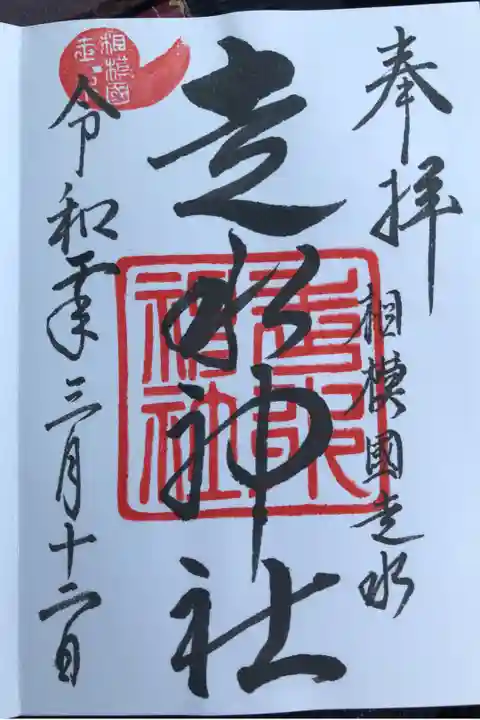 奉拝
相模國走水
走水神社
走水
神社
令和年三月十二日
相模國
走